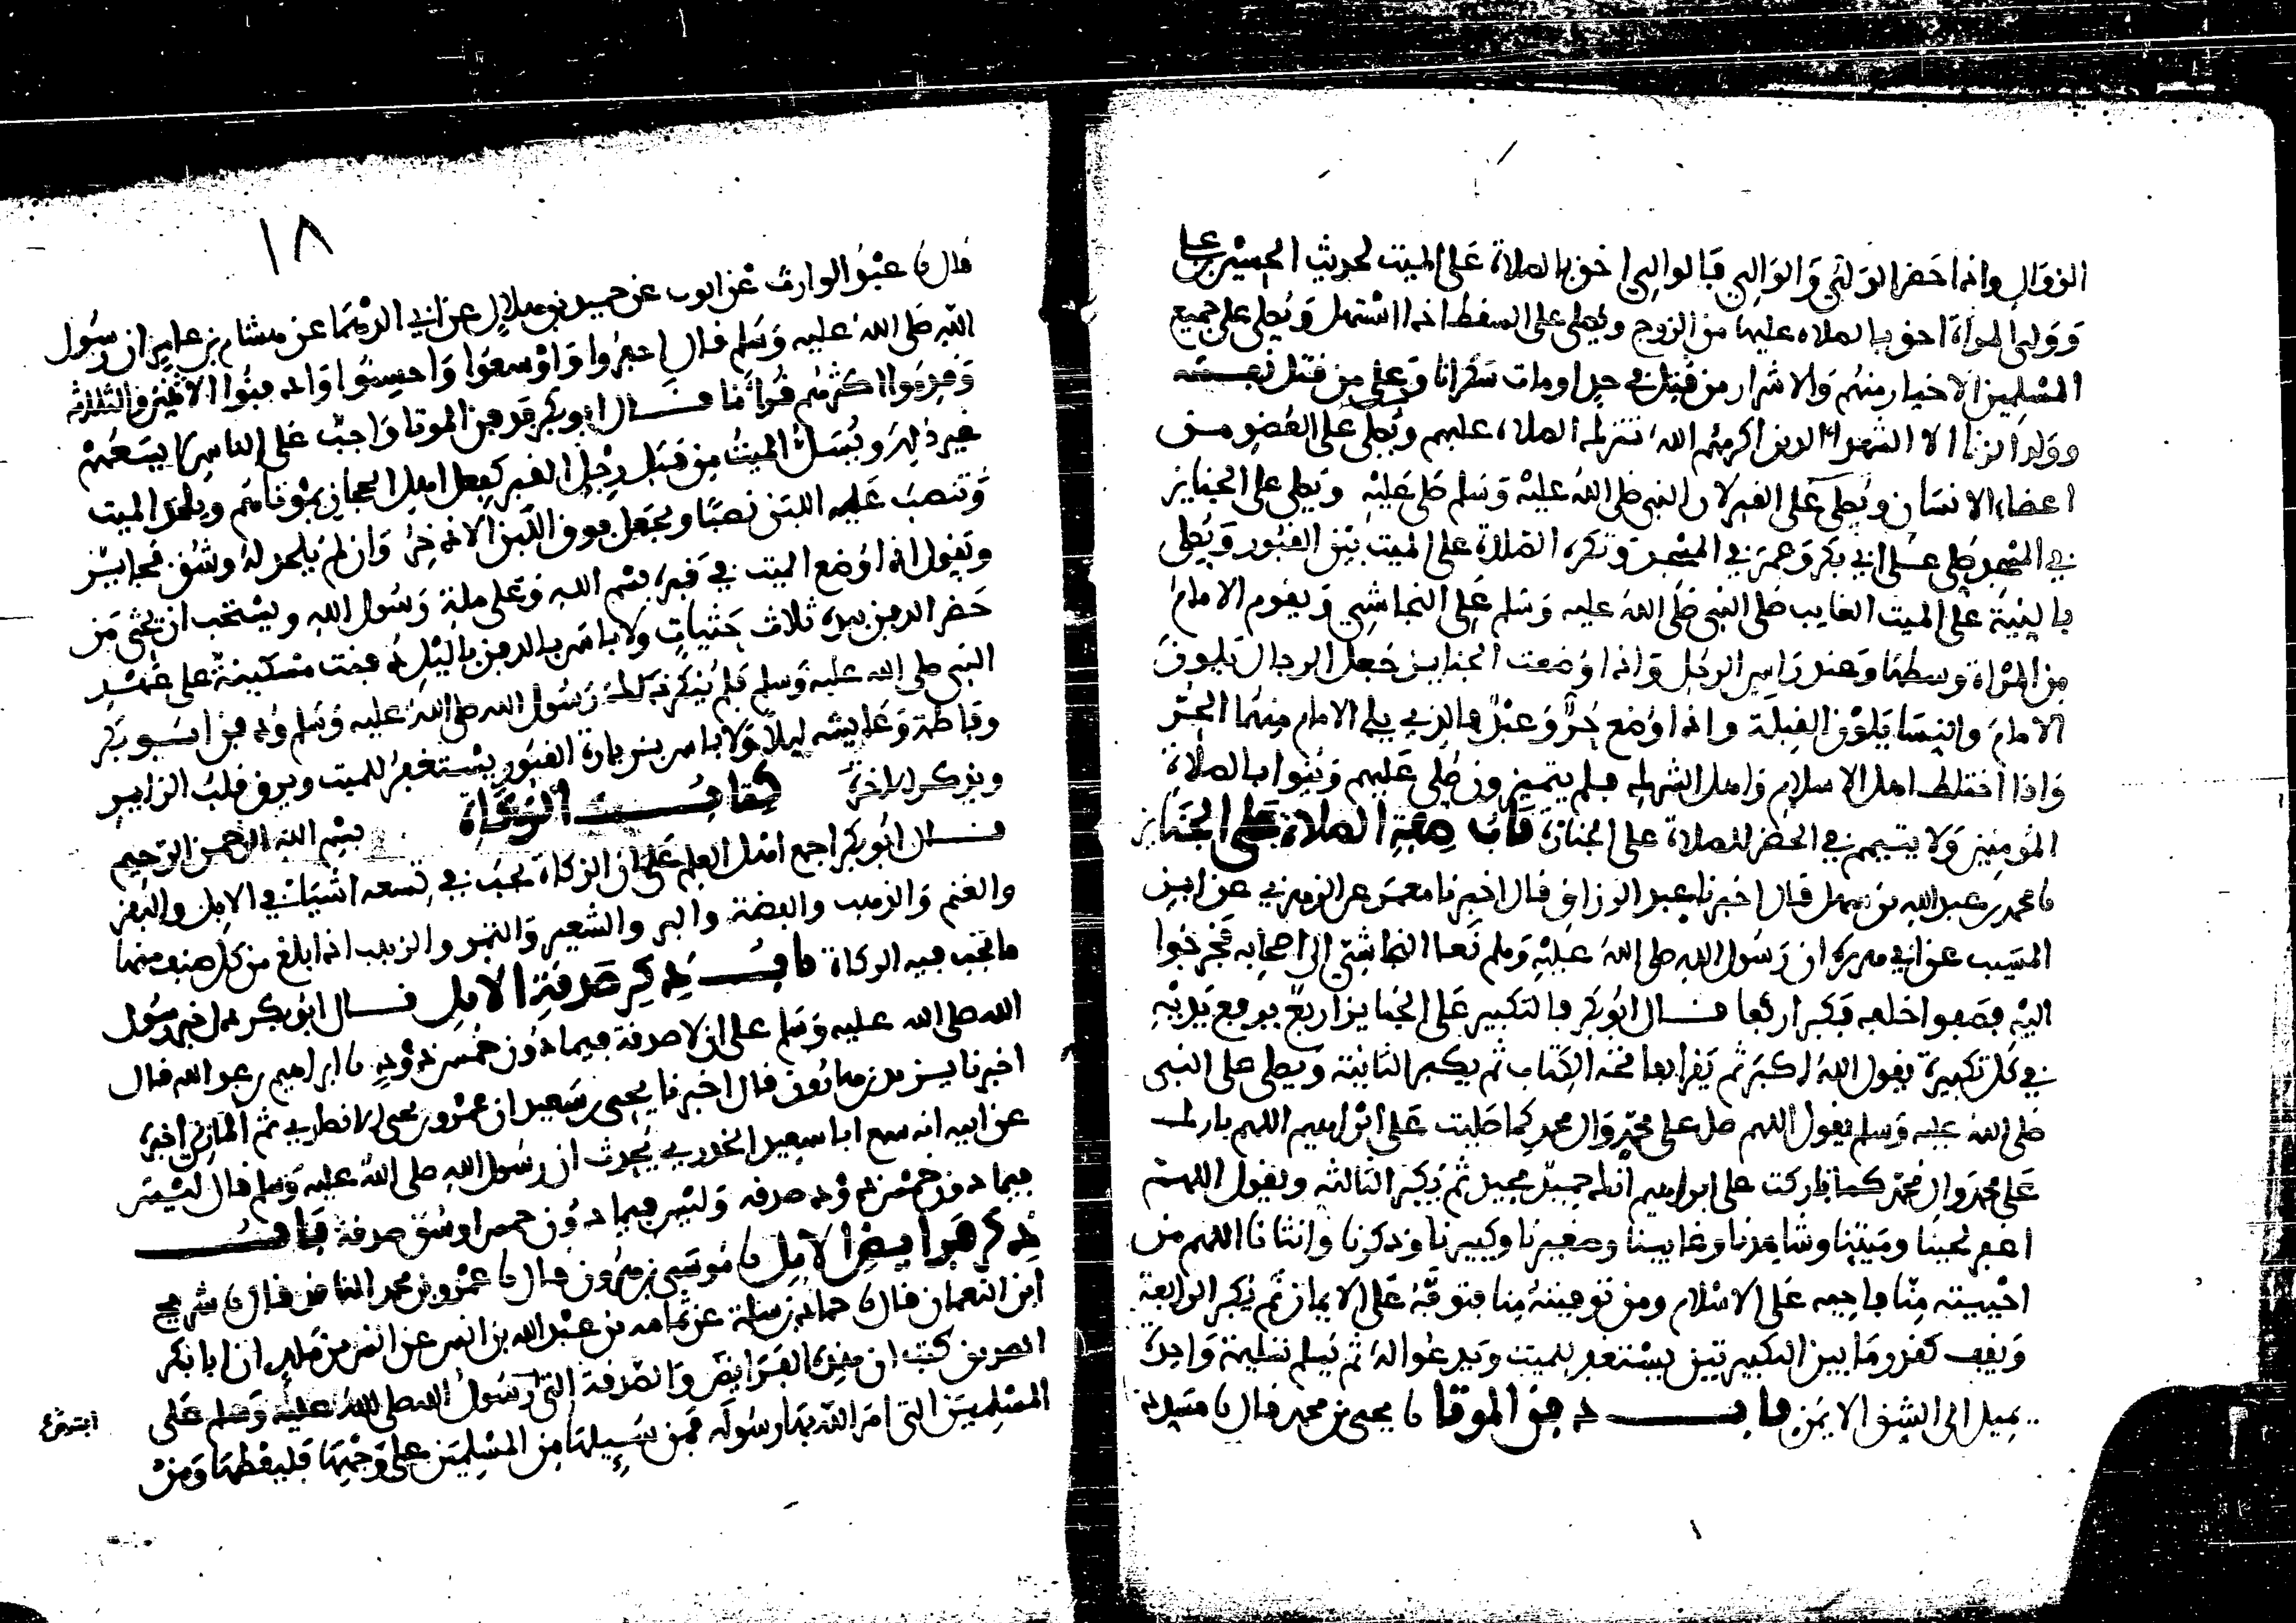 الزوال واذا حضر الولي والوالي فالوالي احق بالصلاة على الميت لحديث الحسين بن علي
وولي المراة احق بالصلاه عليها من الزوج ويصلى على السقط اذا استهل ويصلى على جميع
المسلمين الاخيار منهم والاشرار من قتل في حد او مات سكرانا وعلى من قتل نفسه
وولد الزنا الا الشهدا الذين اكرمهم الله تترك الصلاة عليهم ويصلى على العضو من
اعضاء الانسان ويصلى على القبر لان النبي صلى الله عليه وسلم صلى عليه ويصلى على الجنايز
في المسجد صلي على ابي بكر وعمر في المسجد وتكره الصلاة على الميت بين القبور ويصلى
بالنية على الميت الغايب صلى النبي صلى الله عليه وسلم على النجاشي ويقوم الامام
من المراة وسطها وعند راس الرجل واذا وضعت الجنايز جعل الرجال يلون
الامام والنسا يلون القبلة واذا وضع حر وعبد فالذي يلي الامام منهما الحر
واذا اختلط اهل الاسلام واهل الشرك فلم يتميزون صلي عليهم ونووا بالصلاة
المومنين ولا يتيمم في الحضر للصلاة على الجنازة باب صفة الصلاة على الجنايز
نا محمد بن عبد الله بن مهل قال اخبرنا عبد الرزاق قال اخبرنا معمر عن الزهري عن ابن
المسيب عن ابي هريرة ان رسول الله صلى الله عليه وسلم نعا النجاشي الى اصحابه فخرجوا
اليه فصفوا خلفه فكبر اربعا قال ابو بكر فالتكبير على الجنايز اربع يرفع يديه
في كل تكبيرة يقول الله اكبر ثم يقرا بفاتحة الكتاب ثم يكبر الثانية ويصلي على النبي
صلى الله عليه وسلم يقول اللهم صل على محمد وال محمد كما صليت على ابراهيم اللهم بارك
على محمد وال محمد كما باركت على ابراهيم انك حميد مجيد ثم يكبر الثالثه ويقول اللهم
اغفر لحينا وميتنا وشاهدنا وغايبنا وصغيرنا وكبيرنا وذكرنا وانثانا اللهم من
احييته منا فاحيه على الاسلام ومن توفيته منا فتوفه على الايمان ثم يكبر الرابعة
ويقف كقدر ما بين التكبيرتين يستغفر للميت ويدعوا له ثم يسلم تسليمة واحدة
يميل الى الشق الايمن باب دفن الموتا نا يحيى بن محمد قال نا مسدد
١٨
قال نا عبد الوارث عن ايوب عن حميد بن هلال عن ابي الدهما عن هشام بن عامر ان رسول
الله صلى الله عليه وسلم قال احفروا واوسعوا واحسنوا وادفنوا الاثنين والثلاثه
وقدموا اكثرهم قرانا قال ابو بكر فدفن الموتا واجب على الناس لا يسعهم
غير ذلك ويسل الميت من قبل رجل القبر كفعل اهل الحجاز بموتاهم ويلحد الميت
وتنصب عليه اللبن نصبا ويجعل فوق اللبن الاذخر وان لم يلحد له وشق فجايز
ويقول اذا وضع الميت في قبره بسم الله وعلى ملة رسول الله ويستحب ان يحثي من
حضر الدفن بيده ثلاث حثيات ولا باس بالدفن بالليل دفنت مسكينة على عهد
النبي صلى الله عليه وسلم فلم ينكر ذلك رسول الله صلى الله عليه وسلم ودفن ابو بكر
وفاطمة وعايشه ليلا ولا باس بزيارة القبور يستغفر للميت ويرق قلب الزاير
ويذكر الاخرة كتاب الزكاة بسم الله الرحمن الرحيم
قال ابو بكر اجمع اهل العلم على ان الزكاة تجب في تسعه اشيا في الابل والبقر
والغنم والذهب والفضة والبر والشعير والتمر والزبيب اذا بلغ من كل صنف منها
ما تجب فيه الزكاة باب ذكر صدقة الابل قال ابو بكر دل خبر رسول
الله صلى الله عليه وسلم على ان لا صدقة فيما دون خمس ذود نا ابراهيم بن عبد الله قال
اخبرنا يزيد بن هارون قال اخبرنا يحيى بن سعيد ان عمرو بن يحيى الانصاري ثم المازني اخبره
عن ابيه انه سمع ابا سعيد الخدري يحدث ان رسول الله صلى الله عليه وسلم قال ليس
فيما دون خمس ذود صدقه وليس فيما دون خمس اوسق صدقة باب
ذكر فرايض الابل نا موسى بن هرون قال نا عمرو بن محمد الناقد قال نا شريح
ابن النعمان قال نا حماد بن سلمة عن ثمامه بن عبد الله بن انس عن انس بن مالك ان ابا بكر
الصديق كتب ان هذه الفرايض والصدقة التي رسول الله صلى الله عليه وسلم على
المسلمين التي امر الله بها رسوله فمن سيلها من المسلمين على وجهها فليعطها ومن